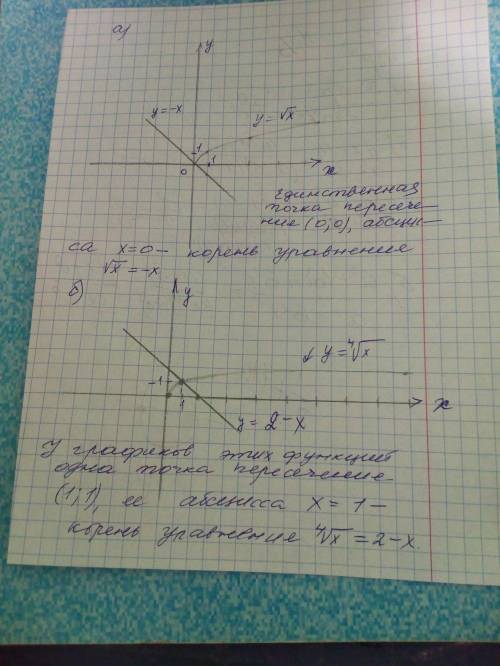 а)
y
y=-x
y=√x
1
0
1
x
Единственная
точка пересече-
ние (0;0), абсцис-
са x=0 - корень уравнение
√x=-x
б)
y
y=⁴√x
1
1
x
y=2-x
У графиков этих функций
одна точка пересечение
(1;1), ее абсцисса x=1-
корень уравнение ⁴√x=2-x.